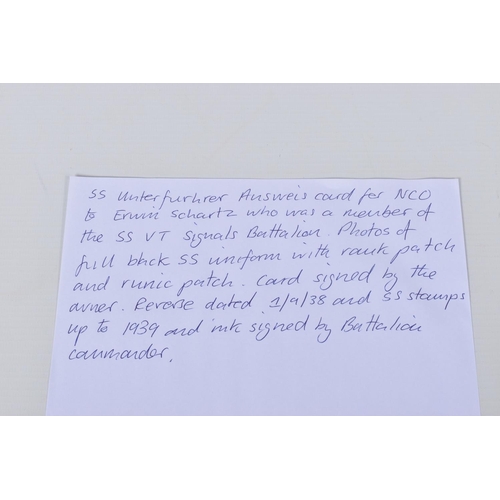 SS Unterfurhrer Answeis card for NCO
to Erwin Schartz who was a member of
the SS VT Signals Battalion. Photos of
full black SS uniform with rank patch
and runic patch. Card signed by the
owner. Reverse dated 1/9/38 and SS stamps
up to 1939 and ink signed by Battalion
commander.